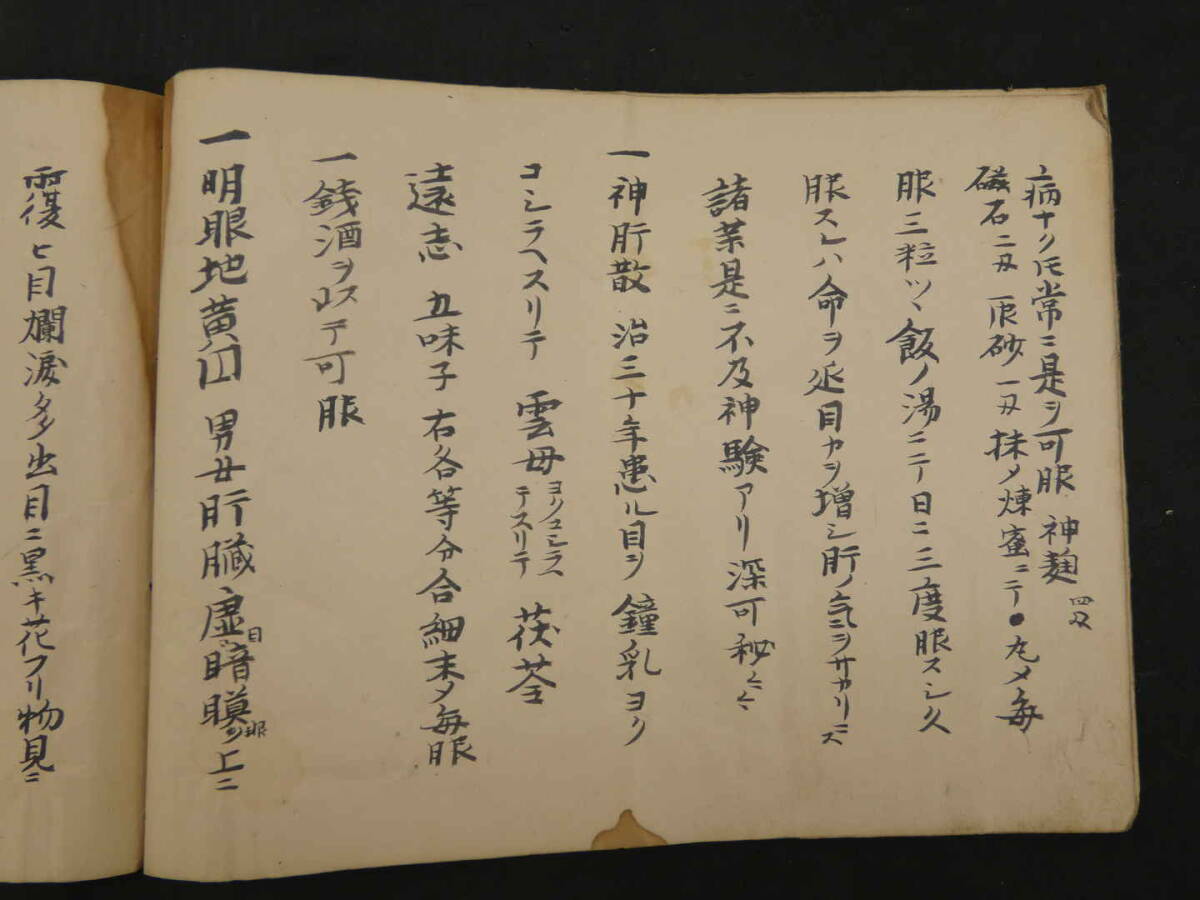 上病ナク𪜈常ニ是ヲ可服 神麹 四匁
磁石 二匁 辰砂 一匁 抹〆煉蜜ニテ●丸〆毎
服三粒ツヽ飯ノ湯ニテ日ニ三度服スシ久
服スレハ命ヲ延目力ヲ増シ肝ノ気ヲサカリニス
諸薬是ニ不及神験アリ深可秘〻〻
一神肝散 治三十年患ル目ヲ 鐘乳ヨク
コシラヘスリテ 雲母 ヨクコシラヘテスリテ 茯苓
遠志 五味子 右各等分合細末〆毎服
一銭酒ヲ以テ可服
一明眼地黄円 男女肝臓虚〆目暗瞙眼ノ上ニ
覆ヒ目爛涙多出目ニ黒キ花フリ物見ニ